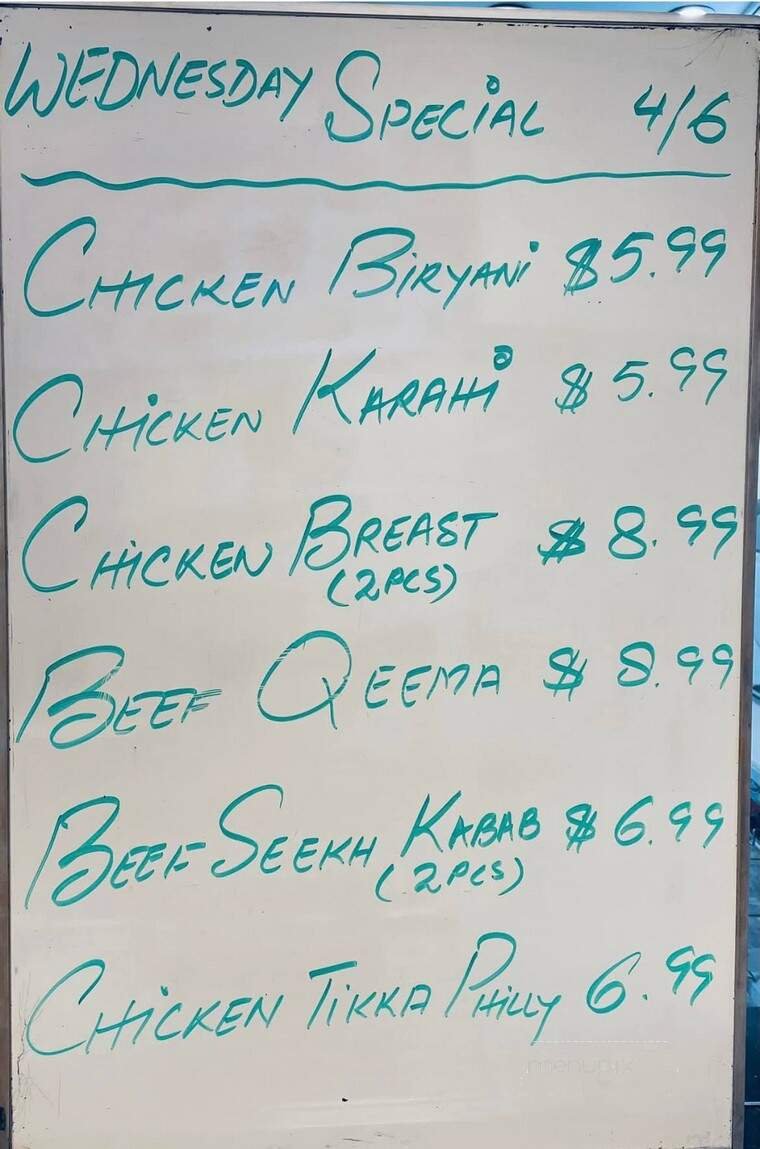 WEDNESDAY SPECIAL 4/6
CHICKEN BIRYANI $5.99
CHICKEN KARAHI $5.99
CHICKEN BREAST $8.99
(2PCS)
BEEF QEEMA $8.99
BEEF SEEKH KABAB $6.99
(2PCS)
CHICKEN TIKKA PHILLY 6.99
menupix